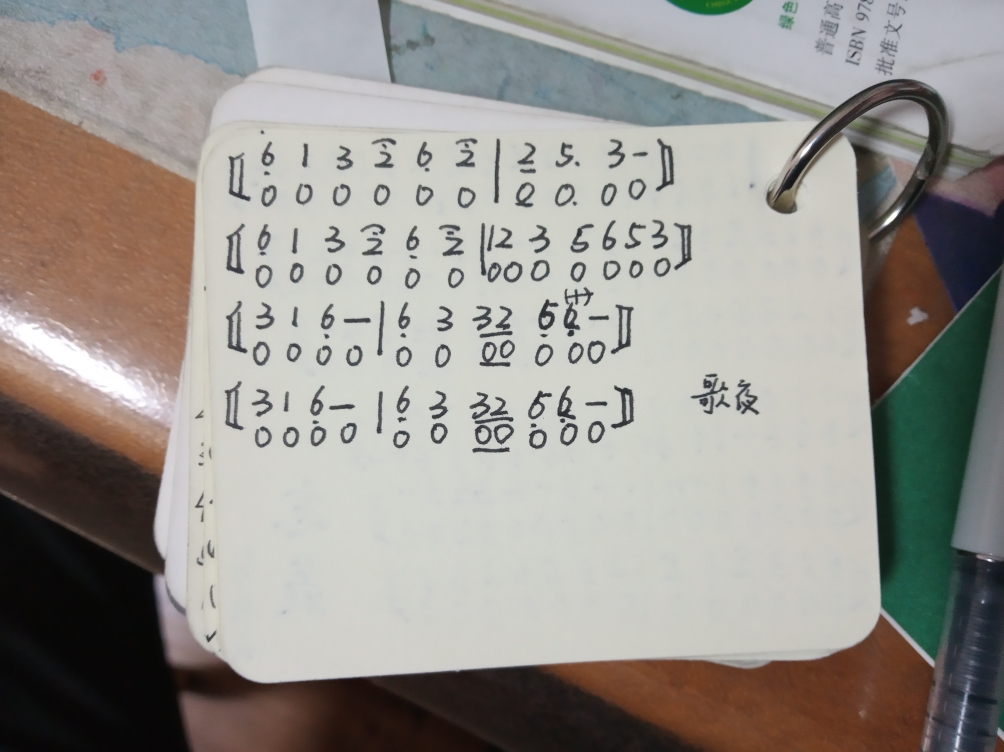 绿色
普通高
ISBN 978
批准文号
6̣ 1 3 2 6̣ 2 | 2 5. 3 -
0 0 0 0 0 0 0 0. 0 0
6̣ 1 3 2 6̣ 2 | 12 3 5 6 5 3
0 0 0 0 0 0 000 0 0 0 0
3 1 6̣ - | 6̣ 3 32 5̣ 6̣ -
0 0 0 0 0 0 00 0 0 0
3 1 6̣ - | 6̣ 3 32 5̣ 6̣ -
0 0 0 0 0 0 00 0 0 0
歌夜